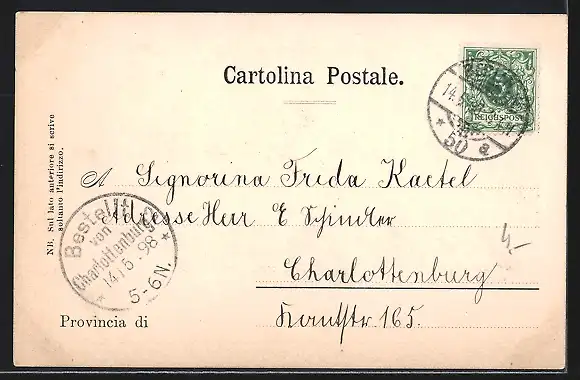 Cartolina Postale.
REICHSPOST
14.5
50 a
NB. Sul lato anteriore si scrive
soltanto l'indirizzo.
A Signorina Frida Kaetel
Adresse Herr E Schindler
Charlottenburg
Kantstr 165.
Bestellt
von
Charlottenburg
14/5 98
5-6 N.
4,-
Provincia di